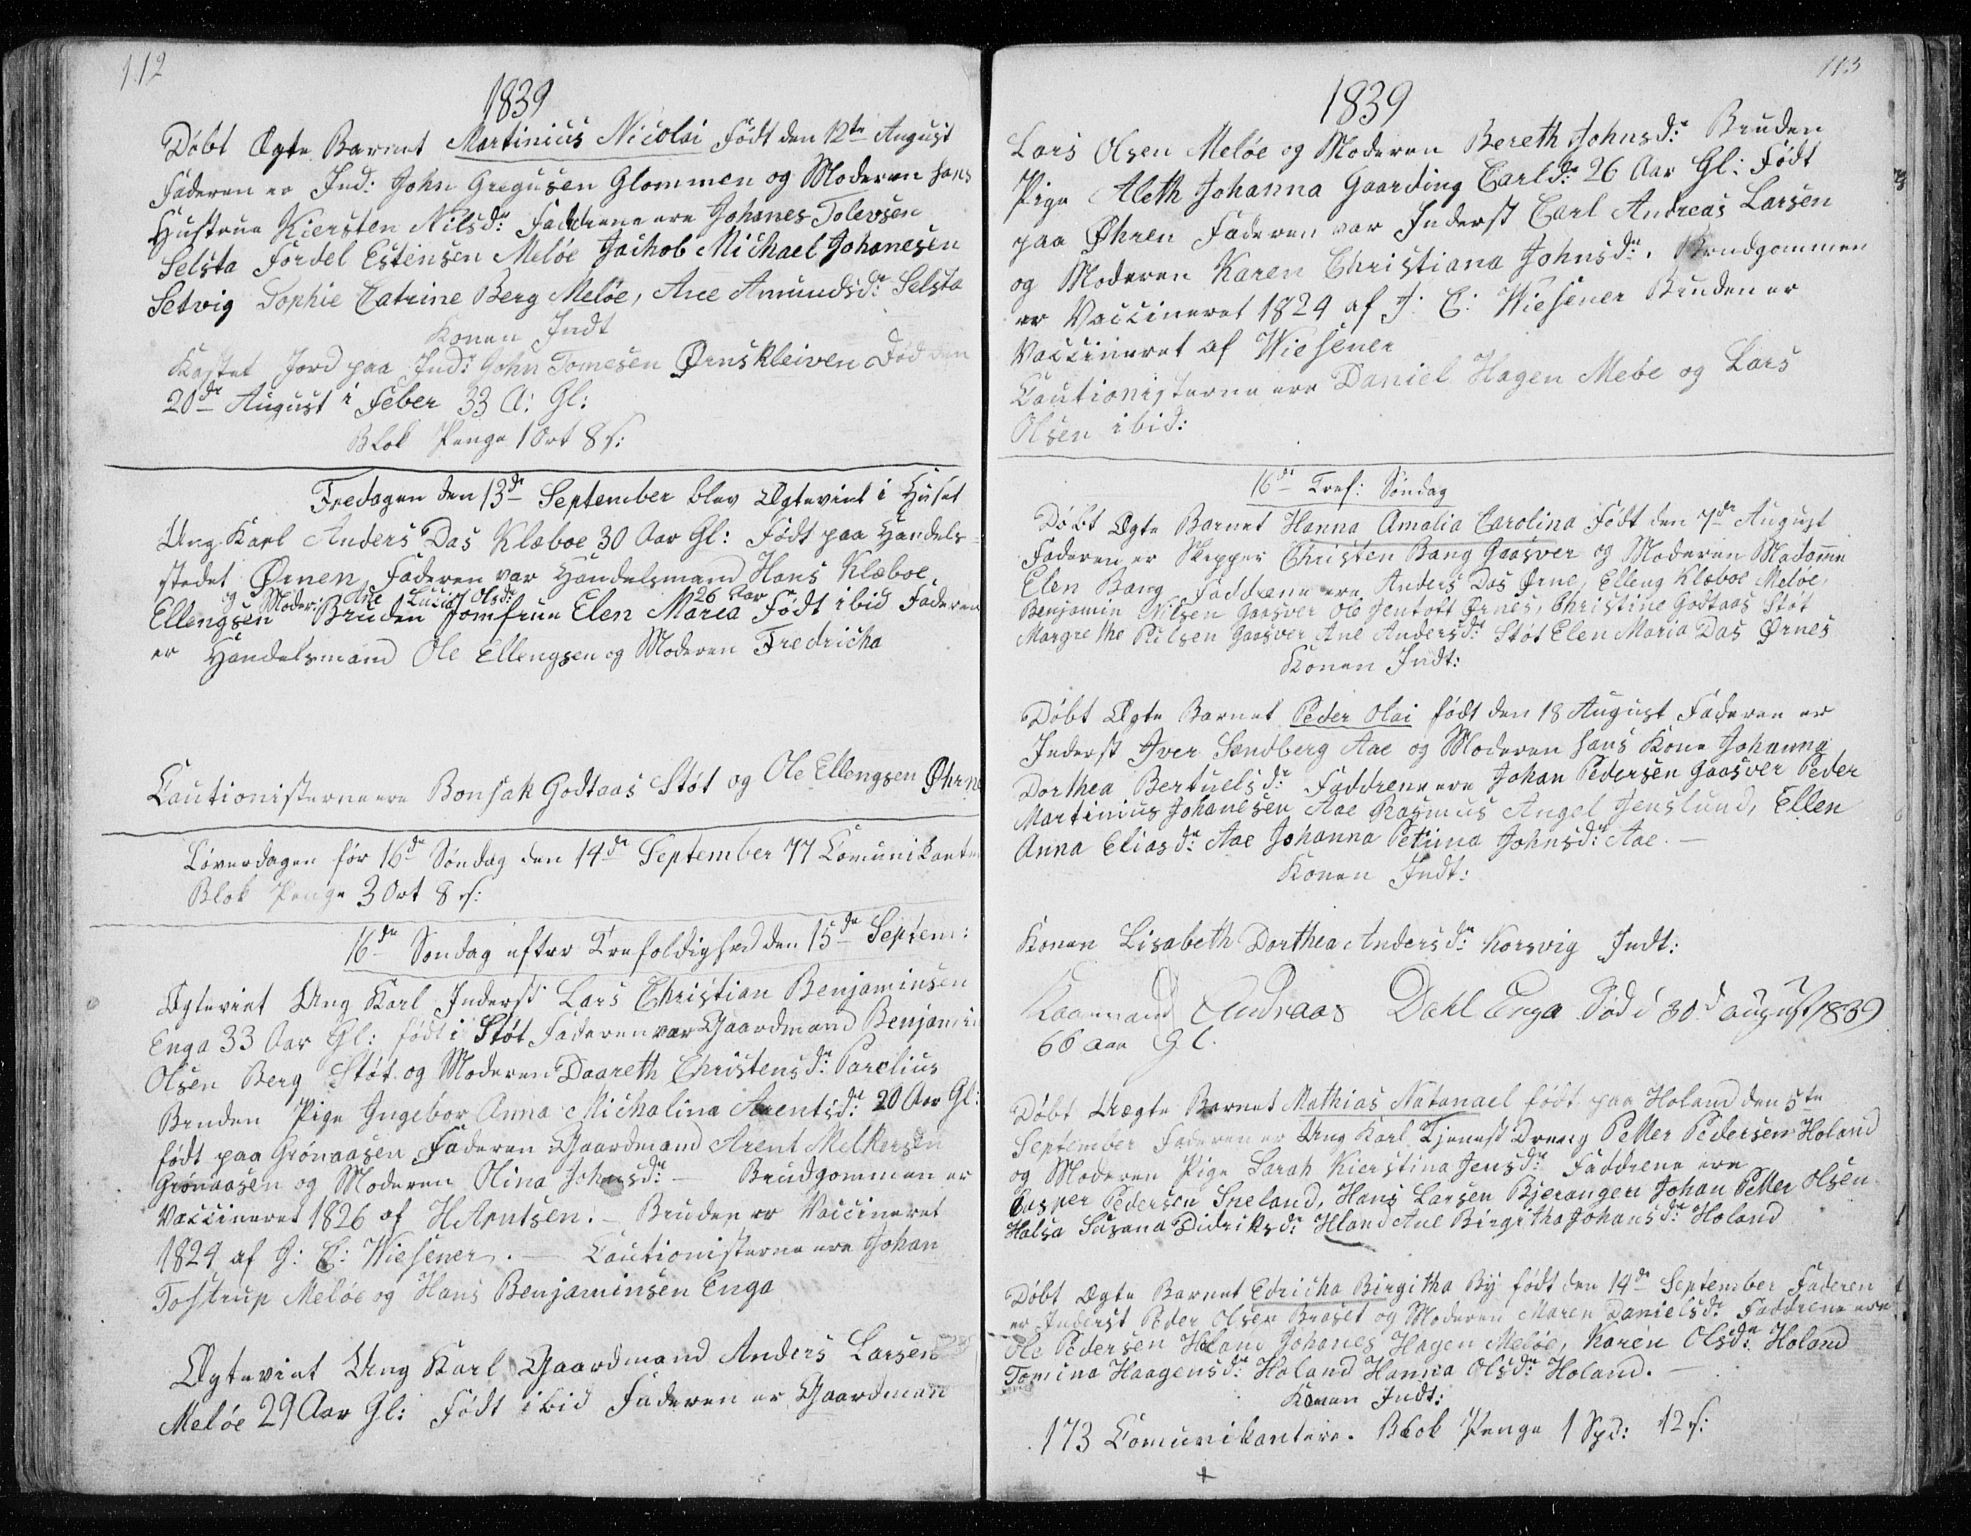 112
1839
Døbt Ægte Barnet Martinius Nicolai Født den 12te August
Faderen er Ind: John Gregusen Glommen og Moderen hans
Hustrue Kiersten Nilsdr: Faddrene ere Johanes Tolevsen
Selsta Fordel Estensen Meløe Jachob Michael Johanesen
Setvig Sophie Catrine Berg Meløe, Ane Amundsdr: Selsta
Konen Indt
Kastet Jord paa Ind: John Tomesen Ørnskleiven Død den
20de August i Feber 33 A: Gl:
Blok Penge 1 Ort 8 s:
Fredagen den 13de September blev Ægteviet i Huset
Ung Karl Anders Das Klæboe 30 Aar Gl: Født paa Handels-
stedet Ørnen, Faderen var Handelsmand Hans Klæboe
og Moder: Ane Lucia Olsdr: 26 Aar
Ellengsen Bruden Jomfrue Elen Maria Født ibid Faderen
er Handelsmand Ole Ellengsen og Moderen Fredricha
Cautionisterne ere Bonsak Godtaas Støt og Ole Ellengsen Øhrne
Løverdagen før 16de Søndag den 14de September 77 Comunikanter
Blok Penge 3 Ort 8 s:
16de Søndag efter Trefoldighed den 15de Septem:
Ægteviet Ung Karl Inderst Lars Christian Benjaminsen
Enga 33 Aar Gl: født i Støt Faderen var Gaardmand Benjamin
Olsen Berg Støt og Moderen Daareth Christensdr: Parelius
Bruden Pige Ingebor Anna Michalina Arentsdr: 20 Aar Gl:
født paa Grønaasen Faderen Gaardmand Arent Melkersen
Grønaasen og Moderen Olina Johansdr: – Brudgommen er
Vaccineret 1826 af H Arntsen. – Bruden er Vaccineret
1824 af J: C: Wiesener. – Cautionisterne ere Johan
Tostrup Meløe og Hans Benjaminsen Enga
Ægteviet Ung Karl Gaardmand Anders Larsen
Meløe 29 Aar Gl: Født ibid Faderen er Gaardman
113
1839
Lars Olsen Meløe og Moderen Bereth Johnsdr: Bruden
Pige Aleth Johanna Gaarding Carldr: 26 Aar Gl: Født
paa Øhren Faderen var Inderst Carl Andreas Larsen
og Moderen Karen Christiana Johnsdr. Brudgommen
er Vaccineret 1824 af J: C: Wiesener Bruden er
Vaccineret af Wiesener
Cautionisterne ere Daniel Hagen Meløe og Lars
Olsen ibid:
16de Tref: Søndag
Døbt Ægte Barnet Hanna Amalia Carolina Født den 7de August
Faderen er Skipper Christen Bang Gaasver og Moderen Madamme
Elen Bang Faddrene ere Anders Das Ørne, Elleng Klæboe Meløe,
Benjamin Nilsen Gaasver Ole Jentoft Ørnes, Christine Godtaas Støt
Margrethe Pulsen Gaasver Ane Andersdr: Støt Elen Maria Das Ørnes
Konen Indt:
Døbt Ægte Barnet Peder Olai født den 18 August Faderen er
Inderst Iver Sandberg Aae og Moderen hans Kone Johanna
Dorthea Bertuelsdr: Faddrene ere Johan Pedersen Gaasver Peder
Martinius Johanesen Aae Rasmus Angel Jenslund, Ellen
Anna Eliasdr: Aae Johanna Petrina Johnsdr: Aae. –
Konen Indt:
Konen Lisabeth Dorthea Andersdr: Korsvig Indt:
Kaarmand Andreas Dahl Enga Død i 30d august 1839
66 aar Gl.
Døbt Uægte Barnet Mathias Natanael født paa Holand den 5te
September Faderen er Ung Karl Tjenest Dreng Petter Pedersen Holand
og Moderen Pige Sarah Kierstina Jensdr: Faddrene ere
Casper Pedersen Speland, Hans Larsen Bjerangen Johan Petter Olsen
Halsa Susana Didriksdr: Hland Ane Birgitha Johansdr: Holand
Døbt Ægte Barnet Edricha Birgitha By født den 14de September Faderen
er Inderst Peder Olsen Braset og Moderen Maren Danielsdr: Faddrene ere
Ole Pedersen Holand Johanes Hagen Meløe, Karen Olsdr: Holand
Tomina Haagensdr: Holand Hanna Olsdr: Holand.
Konen Indt:
173 Comunikantere. Blok Penge 1 Spd: 12 s: